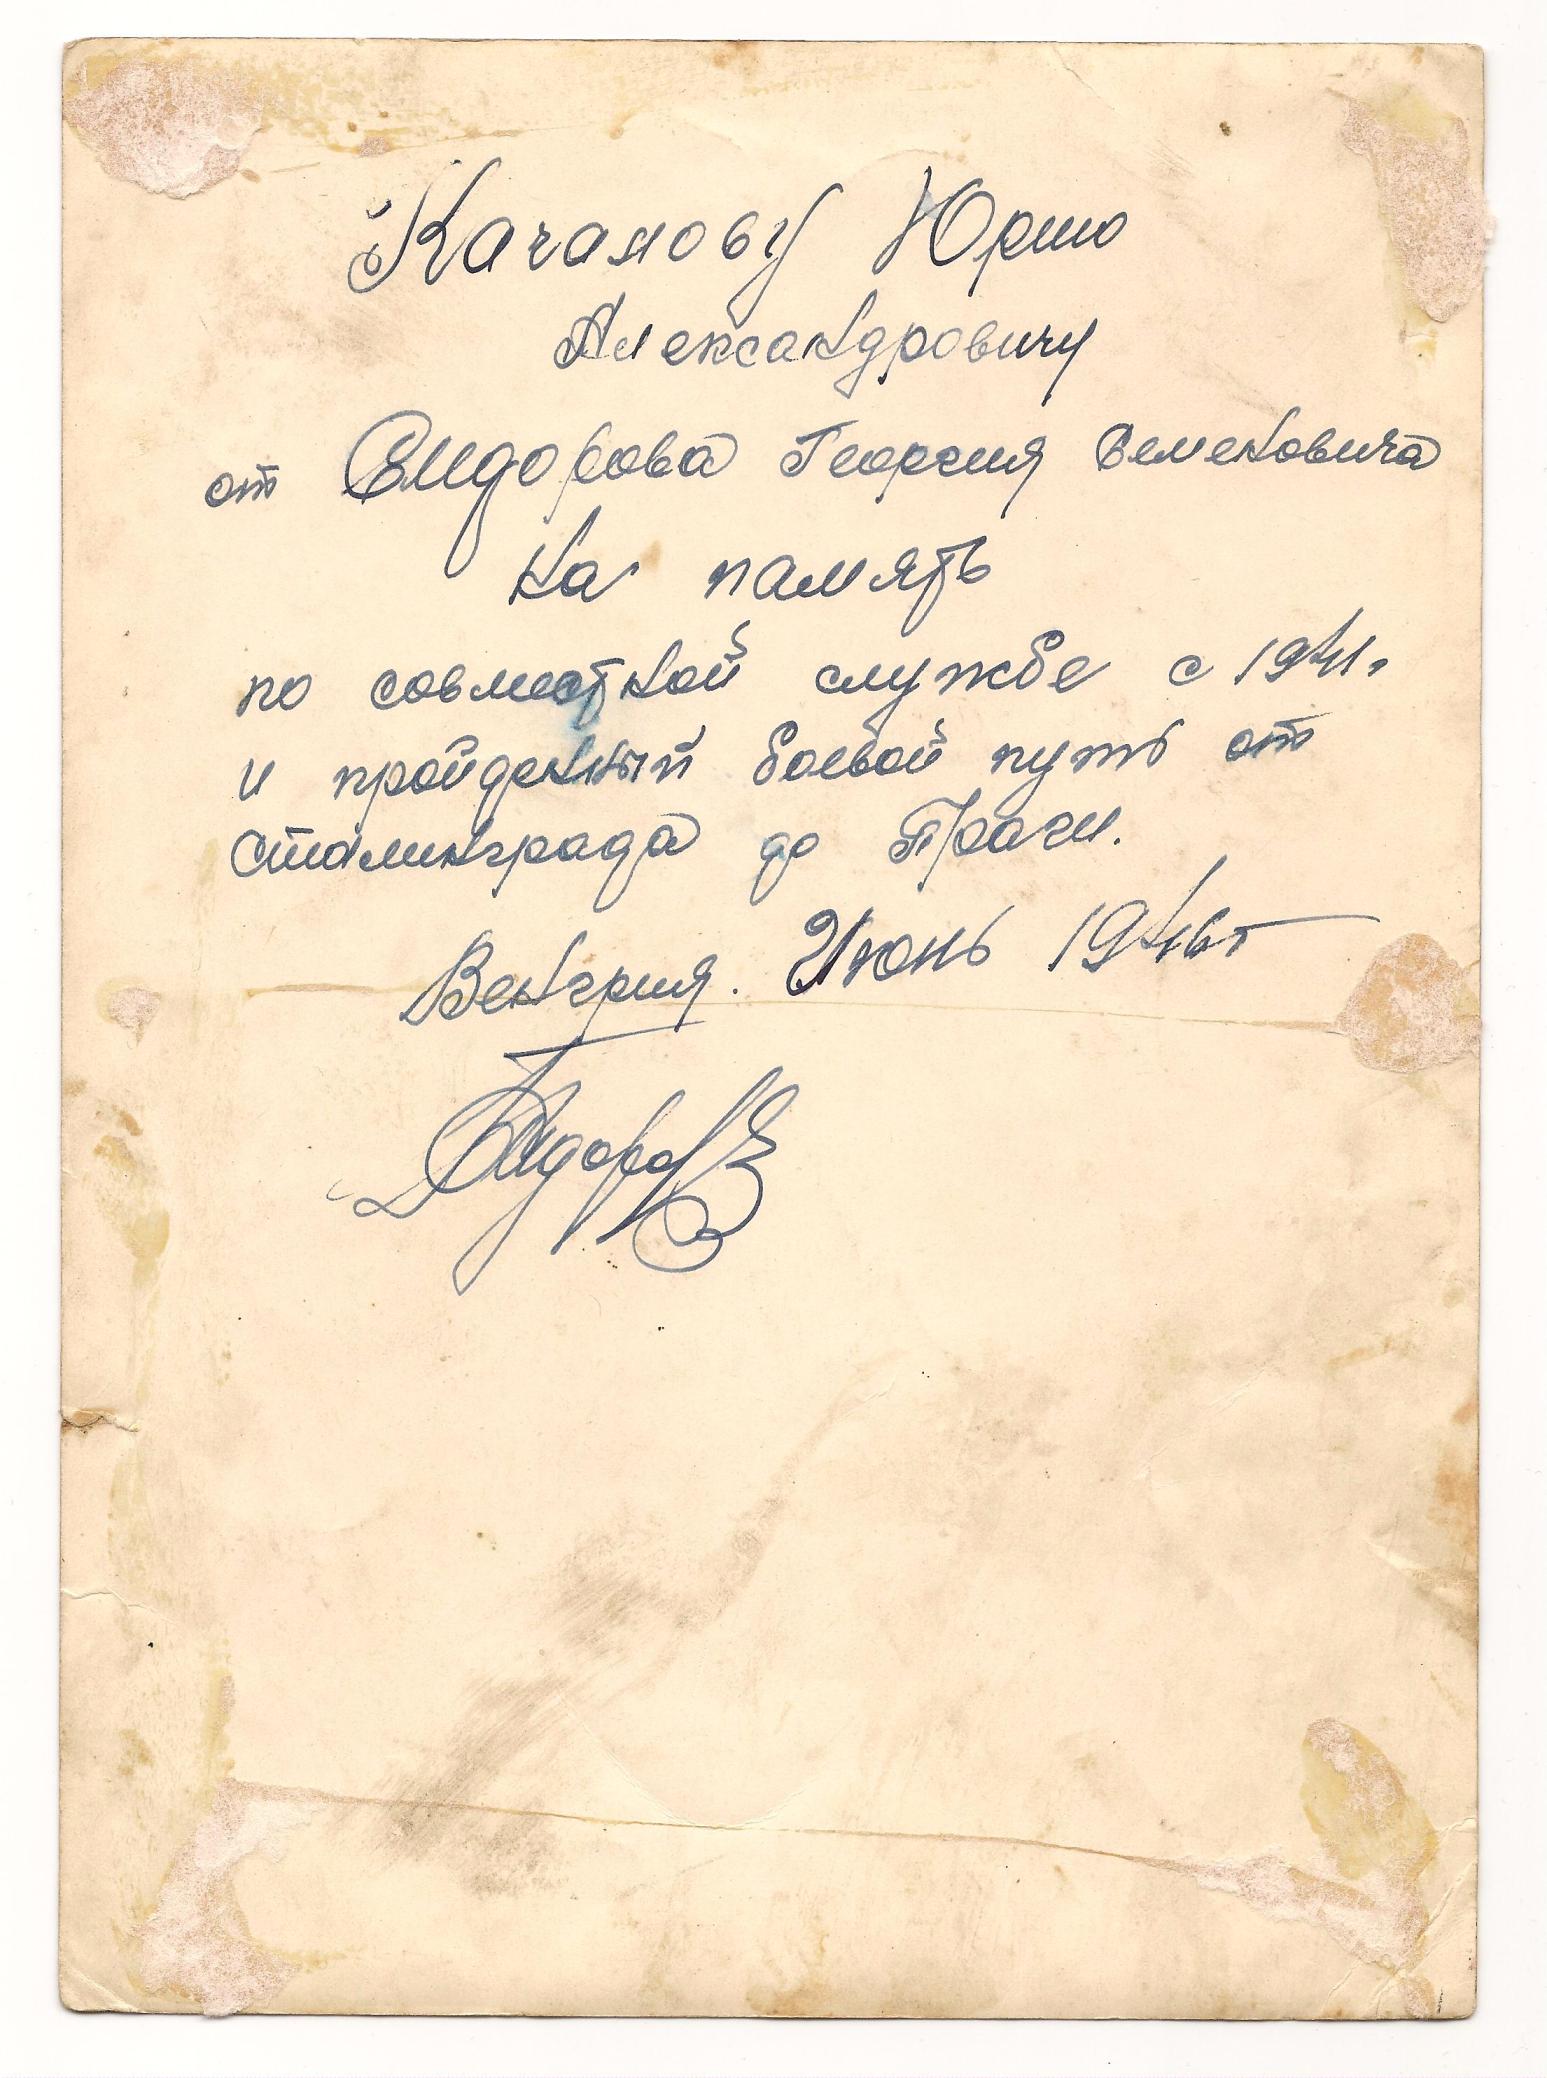 Качанову Юрию
Александровичу
от Сидорова Георгия Семеновича
На память
по совместной службе с 1941г.
и пройденый боевой путь от
Сталинграда до Праги.
Венгрия. Июнь 1946г
Сидоров